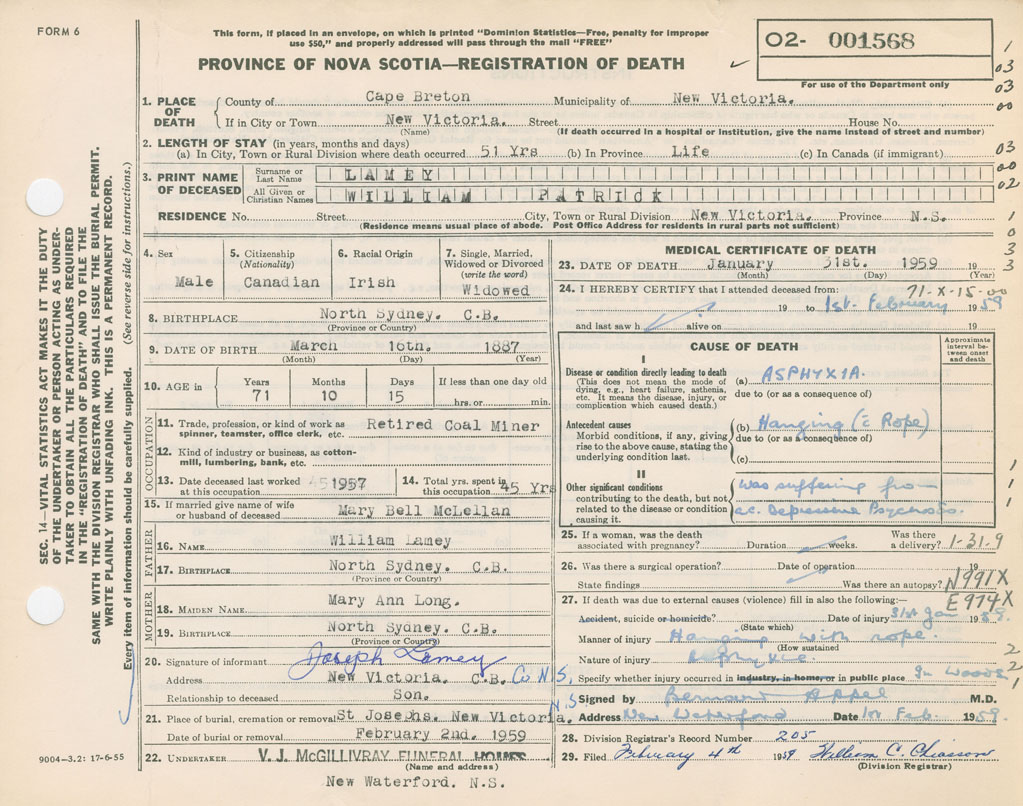 FORM 6
This form, if placed in an envelope, on which is printed "Dominion Statistics—Free, penalty for improper
use $50," and properly addressed will pass through the mail "FREE"
PROVINCE OF NOVA SCOTIA—REGISTRATION OF DEATH
02- 001568
For use of the Department only
1
03
03
00
03
00
02
1
0
3
3
SEC. 14—VITAL STATISTICS ACT MAKES IT THE DUTY
OF THE UNDERTAKER OR PERSON ACTING AS UNDER-
TAKER TO OBTAIN ALL THE PARTICULARS REQUIRED
IN THE "REGISTRATION OF DEATH" AND TO FILE THE
SAME WITH THE DIVISION REGISTRAR WHO SHALL ISSUE THE BURIAL PERMIT.
WRITE PLAINLY WITH UNFADING INK. THIS IS A PERMANENT RECORD.
Every item of information should be carefully supplied. (See reverse side for instructions.)
1. PLACE OF DEATH County of Cape Breton Municipality of New Victoria.
If in City or Town New Victoria. Street House No.
(Name) (If death occurred in a hospital or institution, give the name instead of street and number)
2. LENGTH OF STAY (in years, months and days)
(a) In City, Town or Rural Division where death occurred 51 Yrs (b) In Province Life (c) In Canada (if immigrant)
3. PRINT NAME OF DECEASED Surname or Last Name LAMEY
All Given or Christian Names WILLIAM PATRICK
RESIDENCE No. Street City, Town or Rural Division New Victoria. Province N.S.
(Residence means usual place of abode. Post Office Address for residents in rural parts not sufficient)
4. Sex 5. Citizenship (Nationality) 6. Racial Origin 7. Single, Married, Widowed or Divorced (write the word)
Male Canadian Irish Widowed
8. BIRTHPLACE North Sydney. C.B.
(Province or Country)
9. DATE OF BIRTH March 16th. 1887
(Month) (Day) (Year)
10. AGE in Years Months Days If less than one day old
71 10 15 hrs. or min.
OCCUPATION
11. Trade, profession, or kind of work as spinner, teamster, office clerk, etc. Retired Coal Miner
12. Kind of industry or business, as cotton-mill, lumbering, bank, etc.
13. Date deceased last worked at this occupation 1957 14. Total yrs. spent in this occupation 45 Yrs
15. If married give name of wife or husband of deceased Mary Bell McLellan
FATHER
16. NAME William Lamey
17. BIRTHPLACE North Sydney. C.B.
(Province or Country)
MOTHER
18. MAIDEN NAME Mary Ann Long.
19. BIRTHPLACE North Sydney. C.B.
(Province or Country)
20. Signature of informant Joseph Lamey
Address New Victoria. C.B. Co N.S.
Relationship to deceased Son.
21. Place of burial, cremation or removal St Josephs. New Victoria. N.S
Date of burial or removal February 2nd. 1959
22. UNDERTAKER V. J. McGILLIVRAY FUNERAL HOMES
(Name and address)
New Waterford. N.S.
9004-3.2: 17-6-55
MEDICAL CERTIFICATE OF DEATH
23. DATE OF DEATH January 31st. 1959 19
(Month) (Day) (Year)
71-X-15-00
24. I HEREBY CERTIFY that I attended deceased from:
19 to 1st. February 1959
and last saw h alive on 19
CAUSE OF DEATH
Approximate interval between onset and death
I
Disease or condition directly leading to death
(This does not mean the mode of dying, e.g., heart failure, asthenia, etc. It means the disease, injury, or complication which caused death.)
(a) ASPHYXIA.
due to (or as a consequence of)
Antecedent causes
Morbid conditions, if any, giving rise to the above cause, stating the underlying condition last.
(b) Hanging (c̄ Rope)
due to (or as a consequence of)
(c)
II
Other significant conditions
contributing to the death, but not related to the disease or condition causing it.
Was suffering from
ac. Depressive Psychosis.
1
1
1
25. If a woman, was the death associated with pregnancy? Duration weeks. Was there a delivery? 1-31-9
26. Was there a surgical operation? Date of operation 19
State findings Was there an autopsy? N991X
E974X
27. If death was due to external causes (violence) fill in also the following:—
Accident, suicide or homicide? Date of injury 31st Jan 1959.
(State which)
Manner of injury Hanging with rope.
(How sustained
Nature of injury Asphyxia.
Specify whether injury occurred in industry, in home, or in public place In Woods
2
2
1
Signed by Bernard Appel M.D.
Address New Waterford Date 1st Feb. 1959.
28. Division Registrar's Record Number 205
29. Filed February 4th 1959 William C. Chiasson
(Division Registrar)